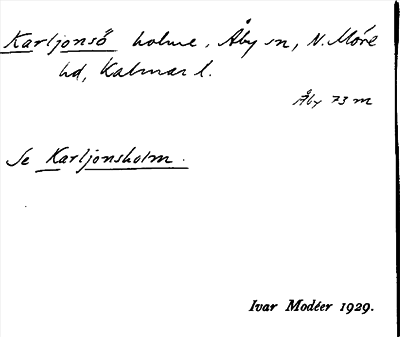 Karljonsö holme, Åby sn, N. Möre
hd, Kalmar l.
Åby 73 m
Se Karljonsholm.
Ivar Modéer 1929.